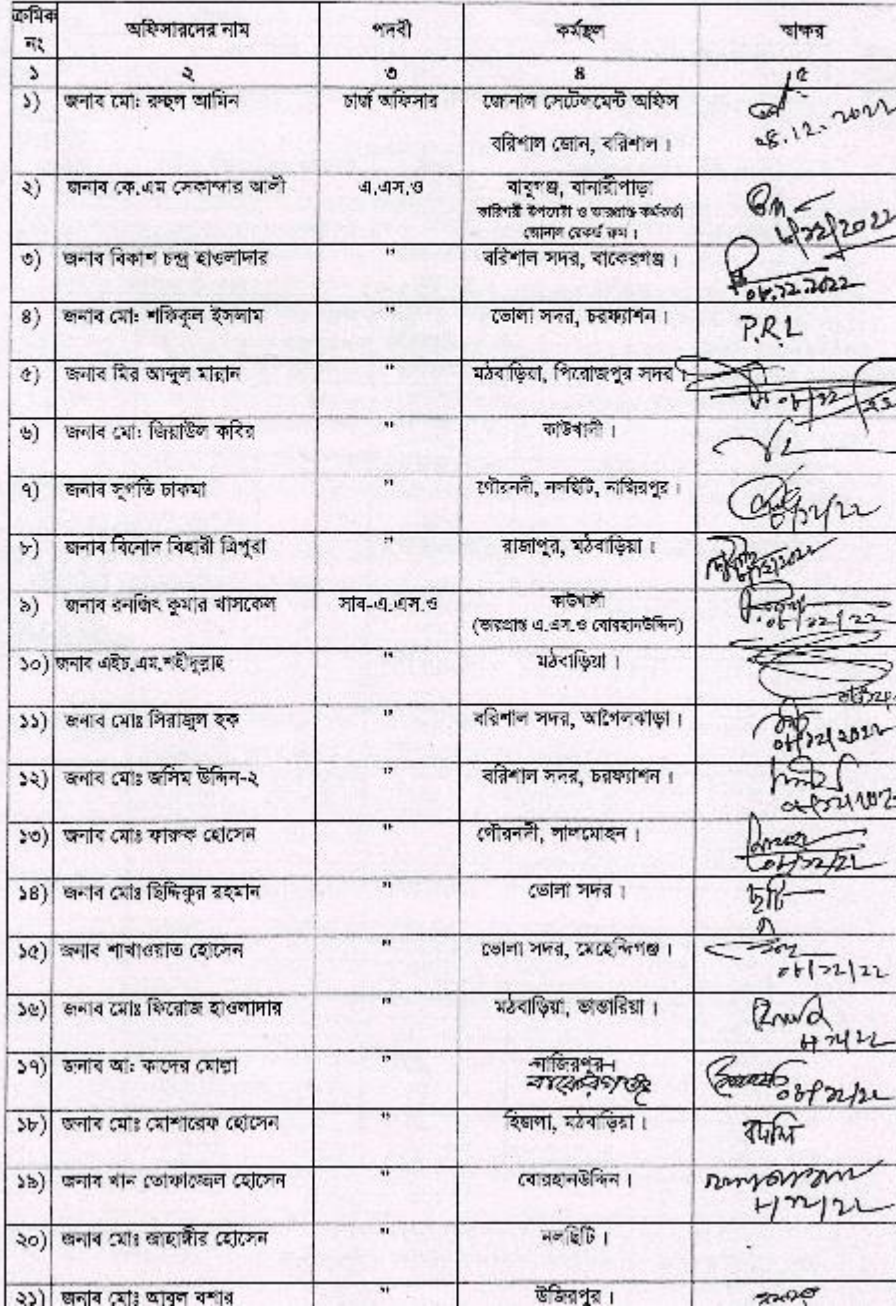 ক্রমিক নং অফিসারদের নাম পদবী কর্মস্থল স্বাক্ষর
১ ২ ৩ ৪ ৫
১) জনাব মো: রুহুল আমিন চার্জ অফিসার জোনাল সেটেলমেন্ট অফিস
বরিশাল জোন, বরিশাল।
২) জনাব কে.এম সেকান্দার আলী এ.এস.ও বাবুগঞ্জ, বানারীপাড়া
কারিগরী উপদেষ্টা ও ভারপ্রাপ্ত কর্মকর্তা
জোনাল রেকর্ড রুম।
৩) জনাব বিকাশ চন্দ্র হাওলাদার " বরিশাল সদর, বাকেরগঞ্জ।
৪) জনাব মো: শফিকুল ইসলাম " ভোলা সদর, চরফ্যাশন। P.R.L
৫) জনাব মির আব্দুল মান্নান " মঠবাড়িয়া, পিরোজপুর সদর।
৬) জনাব মো: জিয়াউল কবির " কাউখালী।
৭) জনাব সুগতি চাকমা " গৌরনদী, নলছিটি, নাজিরপুর।
৮) জনাব বিনোদ বিহারী ত্রিপুরা " রাজাপুর, মঠবাড়িয়া।
৯) জনাব রনজিৎ কুমার খাসকেল সাব-এ.এস.ও কাউখালী
(ভারপ্রাপ্ত এ.এস.ও বোরহানউদ্দিন)
১০) জনাব এইচ.এম.শহীদুল্লাহ " মঠবাড়িয়া।
১১) জনাব মোঃ সিরাজুল হক " বরিশাল সদর, আগৈলঝাড়া।
১২) জনাব মোঃ জসিম উদ্দিন-২ " বরিশাল সদর, চরফ্যাশন।
১৩) জনাব মোঃ ফারুক হোসেন " গৌরনদী, লালমোহন।
১৪) জনাব মোঃ ছিদ্দিকুর রহমান " ভোলা সদর। ছুটি
১৫) জনাব শাখাওয়াত হোসেন " ভোলা সদর, মেহেন্দিগঞ্জ।
১৬) জনাব মোঃ ফিরোজ হাওলাদার " মঠবাড়িয়া, ভান্ডারিয়া।
১৭) জনাব আ: কাদের মোল্লা " নাজিরপুর।
বাকেরগঞ্জ
১৮) জনাব মোঃ মোশারেফ হোসেন " হিজলা, মঠবাড়িয়া। বদলি
১৯) জনাব খান তোফাজ্জেল হোসেন " বোরহানউদ্দিন।
২০) জনাব মোঃ জাহাঙ্গীর হোসেন " নলছিটি।
২১) জনাব মোঃ আবুল বশার " উজিরপুর।